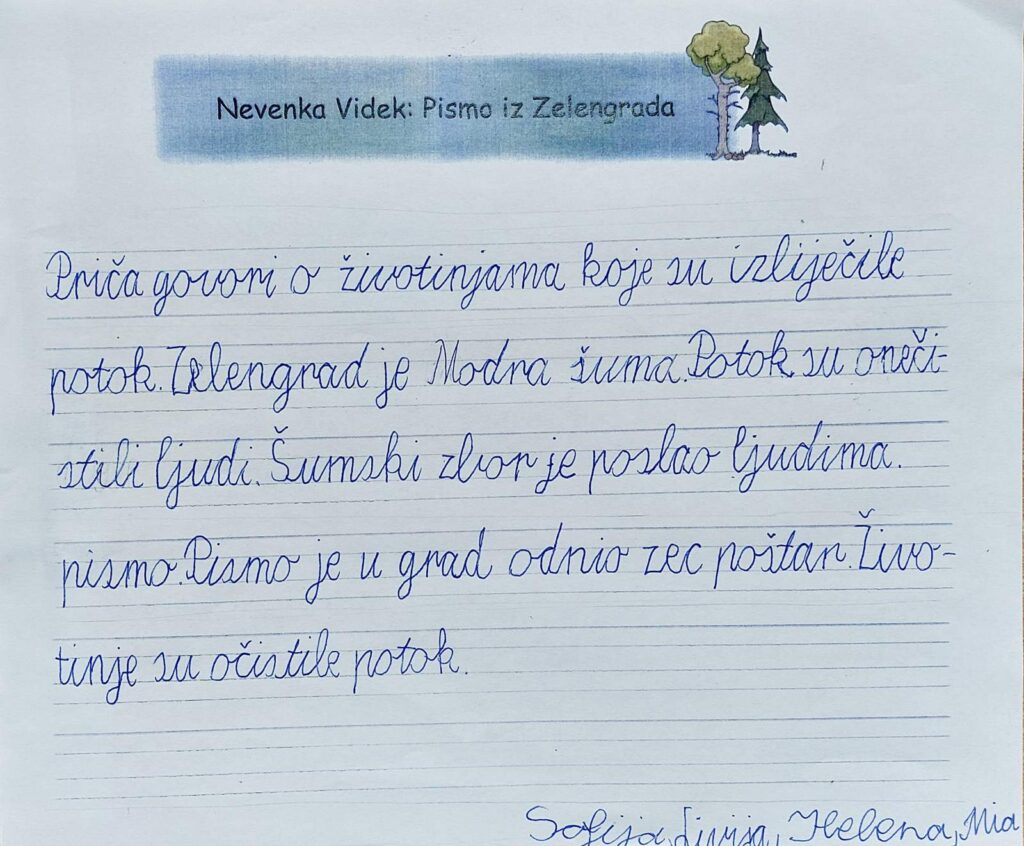 Nevenka Videk: Pismo iz Zelengrada
Priča govori o životinjama koje su izliječile
potok. Zelengrad je Modra šuma. Potok su oneči-
stili ljudi. Šumski zbor je poslao ljudima.
pismo. Pismo je u grad odnio zec poštar. Živo-
tinje su očistile potok.
Sofija, Livija, Helena, Mia